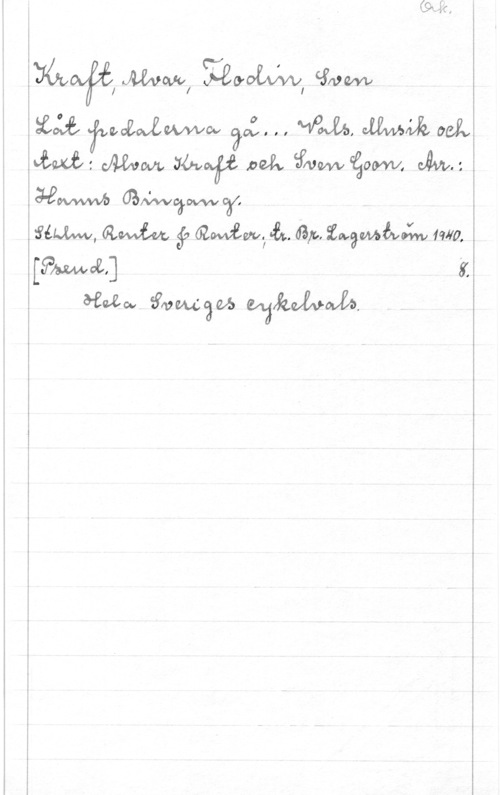 Ork.
Kraft, Alvar, Flodin, Sven
Låt pedalerna gå... Vals. Musik och
text: Alvar Kraft och Sven Goon. Arr.:
Hanns Bingang.
Sthlm, Reuter & Reuter; tr. Br. Lagerström 1940.
[Pseud.] 8.
Hela Sveriges cykelvals.